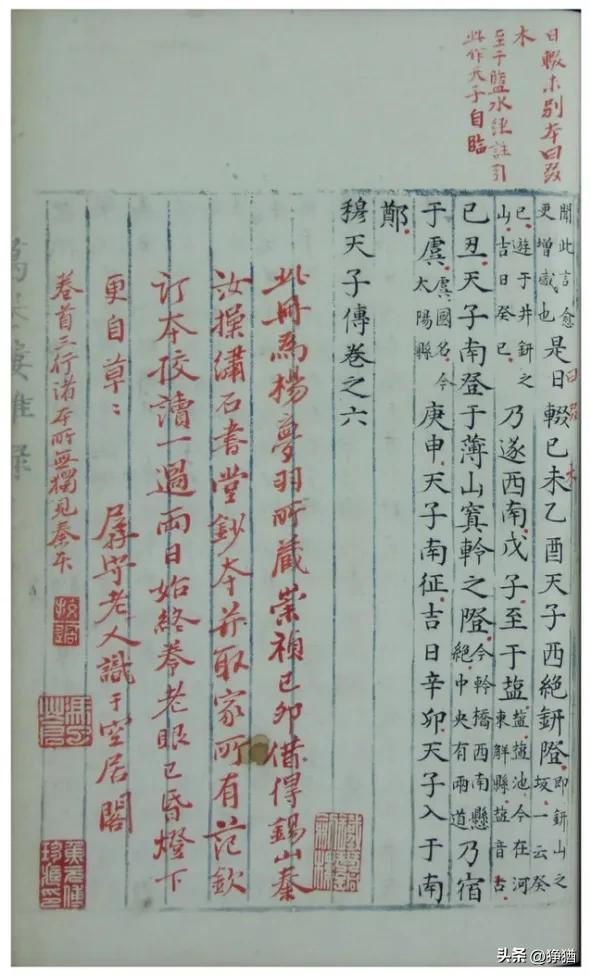 日輟未別本曰歿
木
至于盬水經註引
此作天子自臨
聞此言愈更增感也是日輟已未乙酉天子西絕鈃隥即鈃山之坂一云癸
已遊于井鈃之山吉日癸巳乃遂西南戊子至于盬盬盬池今在河東解縣盬音古
己丑天子南登于薄山寘軨之隥今軨橋西南懸絕中央有兩道乃宿
于虞虞國名今太陽縣庚申天子南征吉日辛卯天子入于南
鄭
穆天子傳卷之六
此冊為楊夢羽所藏崇禎己卯借得錫山秦
汝操繡石書堂鈔本并取家所有范欽
訂本挍讀一過兩日始終卷老眼已昏燈下
更自草〻
孱守老人識于空居閣
卷首三行諸本所無獨見秦本
头条 @狰猶